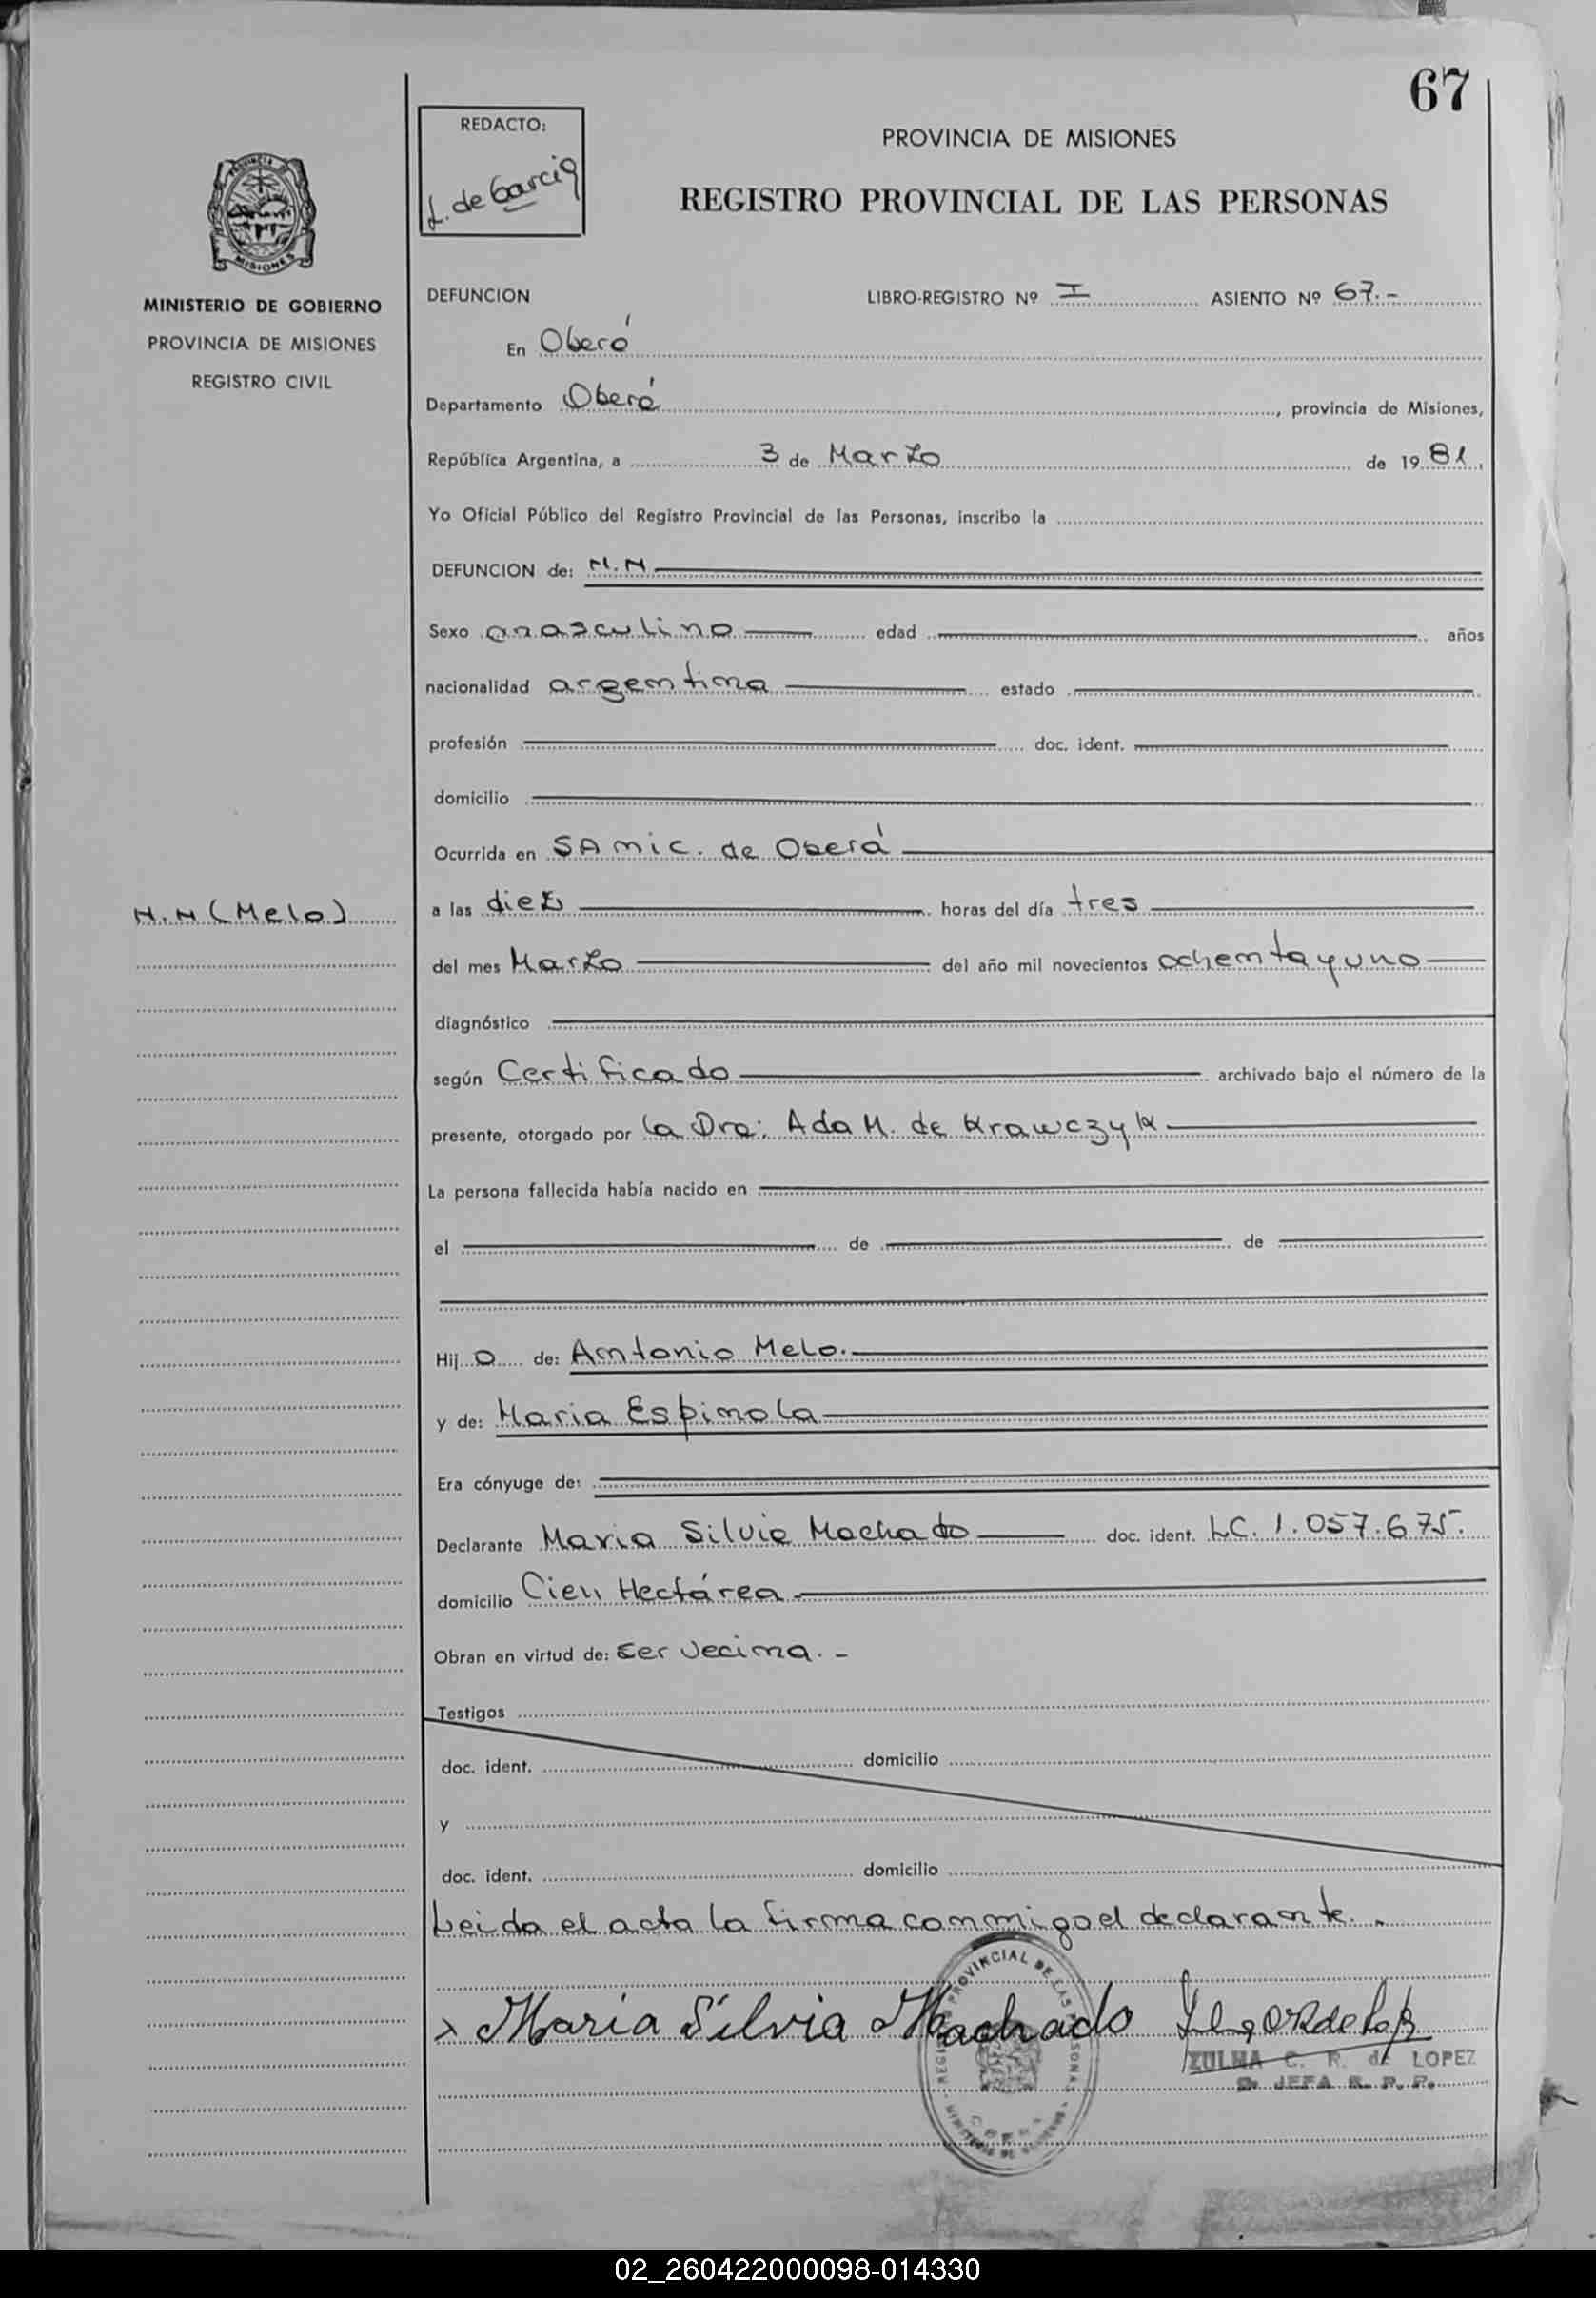 67
REDACTO:
L. de Garcia
PROVINCIA DE MISIONES
REGISTRO PROVINCIAL DE LAS PERSONAS
PROVINCIA DE
MISIONES
MINISTERIO DE GOBIERNO
PROVINCIA DE MISIONES
REGISTRO CIVIL
DEFUNCION LIBRO-REGISTRO Nº I ASIENTO Nº 67.-
En Oberá
Departamento Oberá, provincia de Misiones,
República Argentina, a 3 de Marzo de 1981,
Yo Oficial Público del Registro Provincial de las Personas, inscribo la
DEFUNCION de: N.N
Sexo masculino edad años
nacionalidad argentina estado
profesión doc. ident.
domicilio
Ocurrida en SAmic. de Oberá
N.N (Melo)
a las diez horas del día tres
del mes Marzo del año mil novecientos ochenta y uno
diagnóstico
según Certificado archivado bajo el número de la
presente, otorgado por la Dra: Ada M. de Krawczyk
La persona fallecida había nacido en
el de de
Hijo de: Antonio Melo.
y de: Maria Espinola
Era cónyuge de:
Declarante Maria Silvia Machado doc. ident. LC. 1.057.675.
domicilio Cien Hectárea
Obran en virtud de: ser vecina.-
Testigos
doc. ident. domicilio
y
doc. ident. domicilio
Leida el acta la firma conmigo el declarante.-
Maria Silvia Machado
ZULMA C. R. de LOPEZ
JEFA R. P. P.
02_260422000098-014330